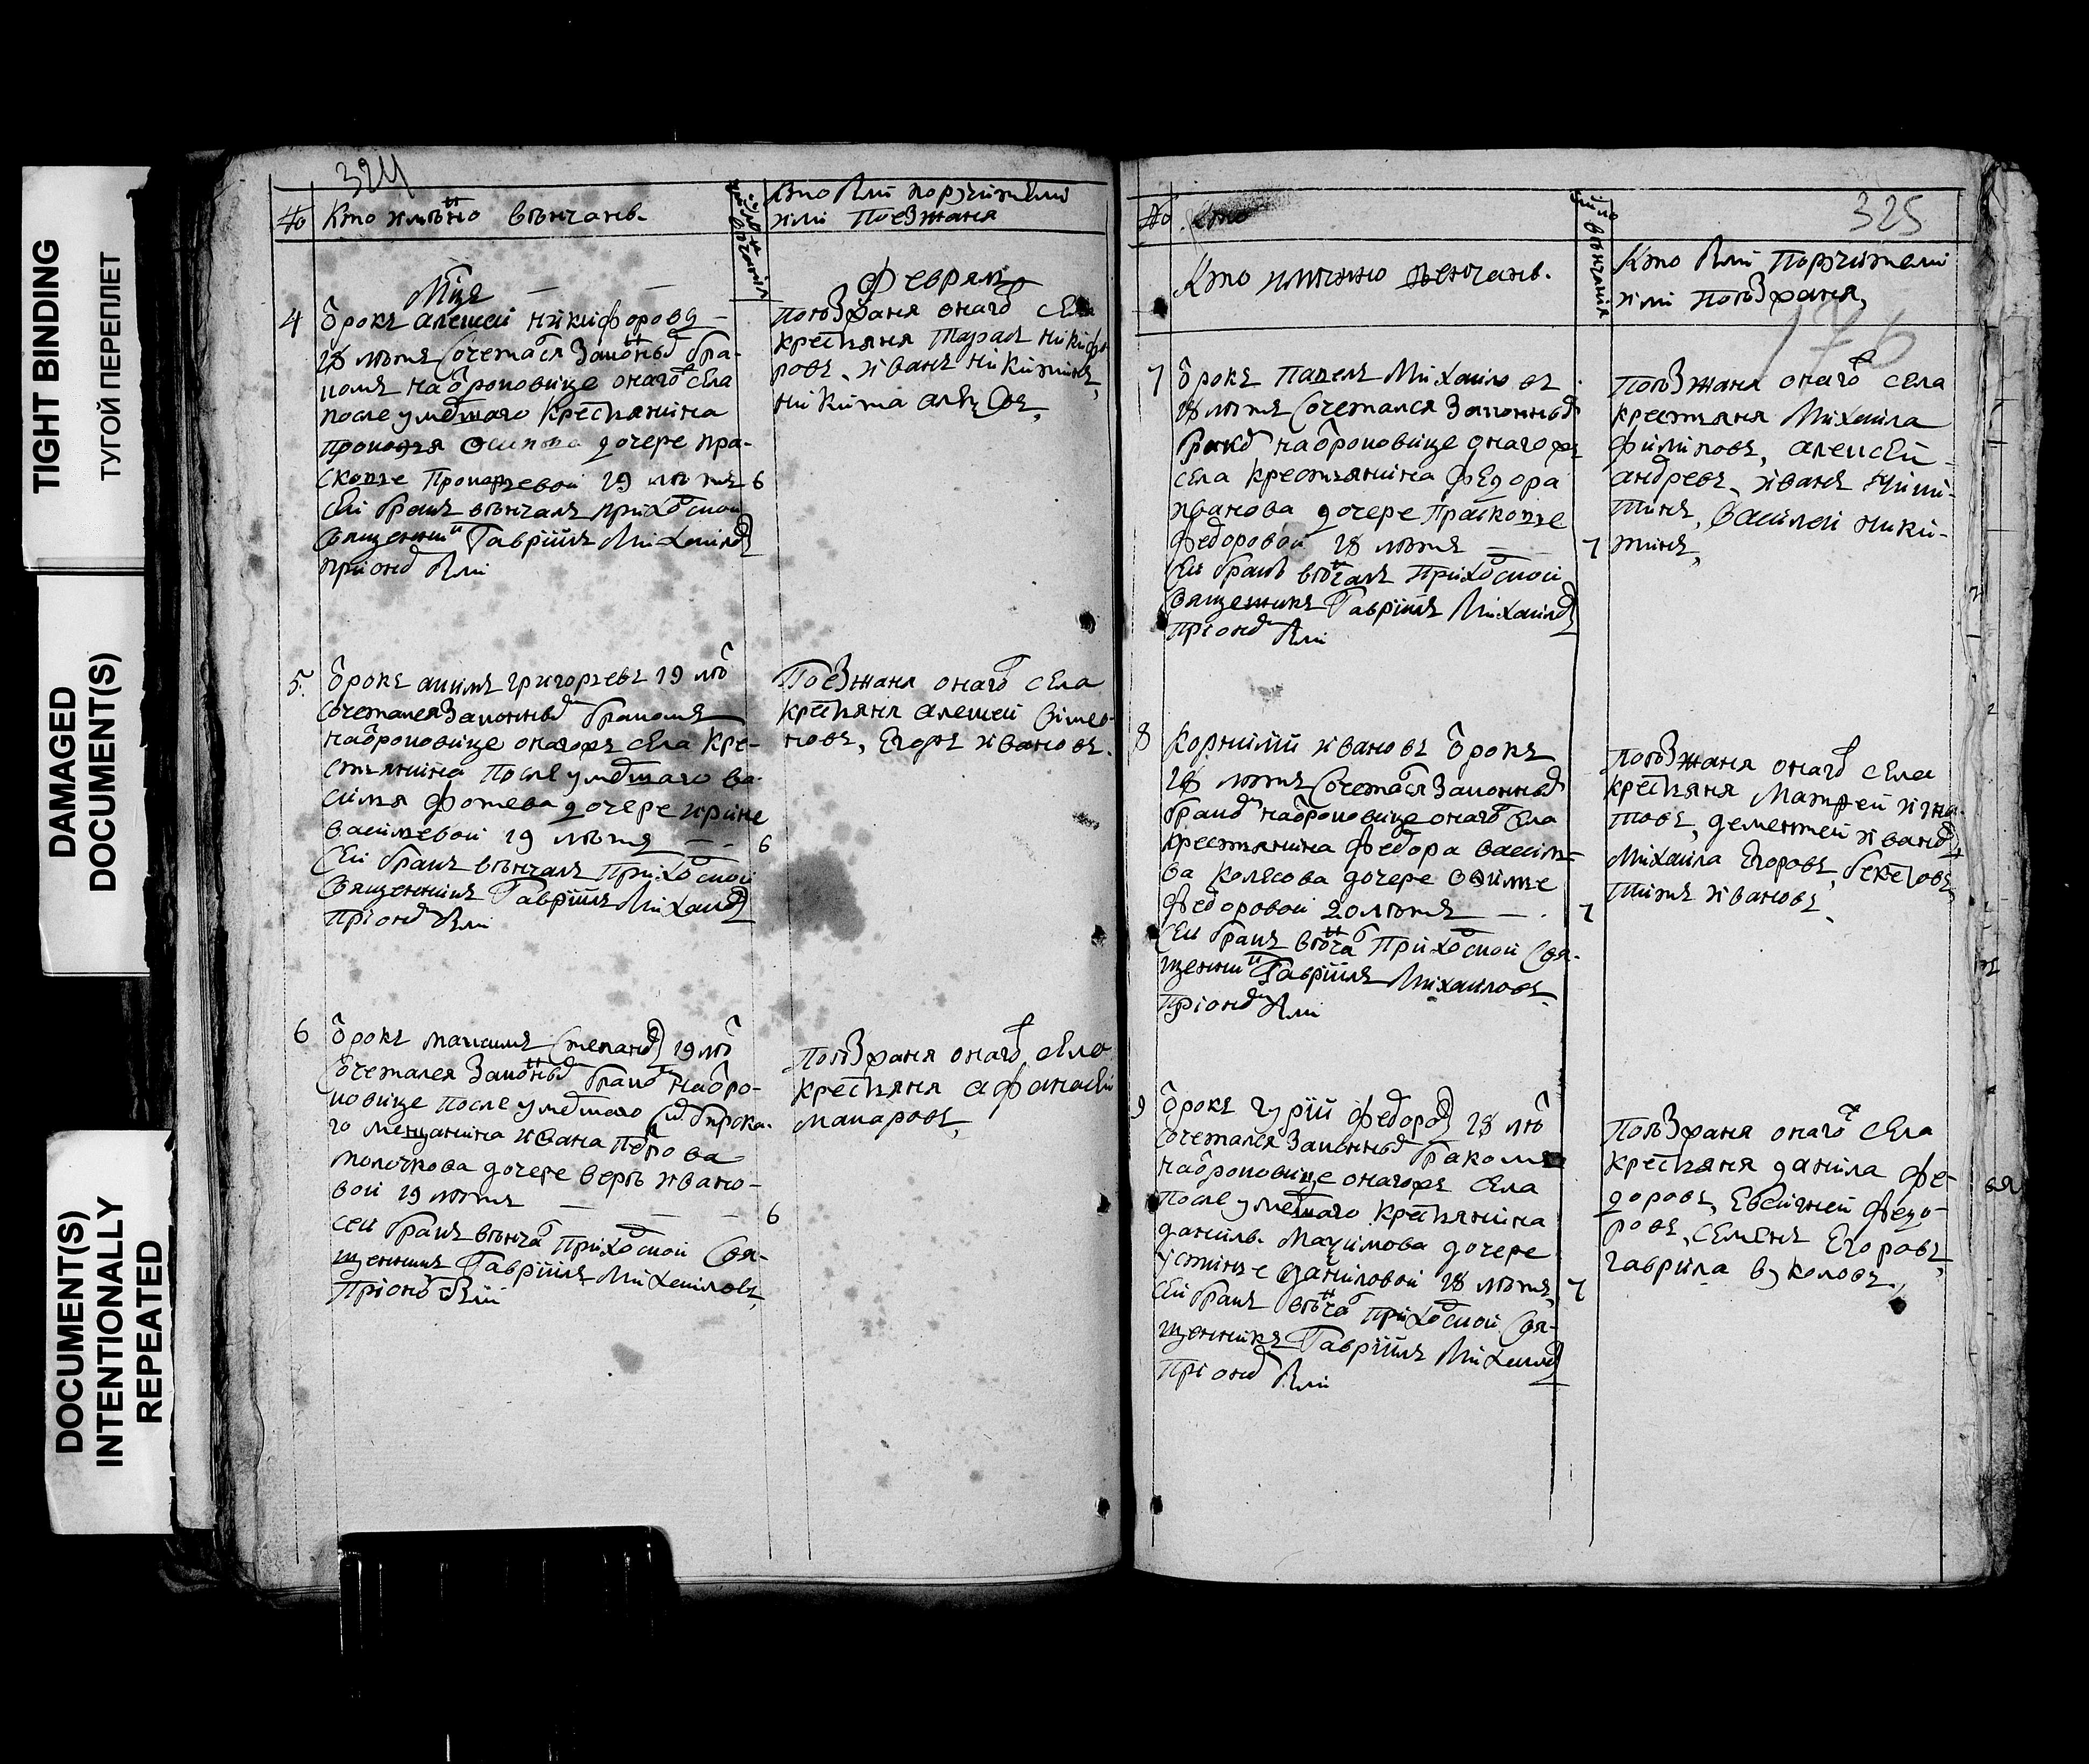 TIGHT BINDING
ТУГОЙ ПЕРЕПЛЕТ
DAMAGED
DOCUMENT(S)
DOCUMENT(S)
INTENTIONALLY
REPEATED
324
№ Кто имѣно вѣнчанъ.
число вѣнчанія
Кто были поручители
или Поезжаня
Мца Февраля
4 Отрокъ алексей никифоровъ
18 лѣтъ сочетался законнымъ бра-
комъ на отроковице онаго села
после умершаго крестьянина
прокофья осипова дочере пра-
сковье Прокофьевой 19 лѣтъ 6
сей бракъ вѣнчалъ приходской
священникъ Гаврiилъ Михаиловъ
при оной были
поѣзжаня онаго села
крестьяня Тарасъ никифо
ровъ, иванъ никитинъ,
никита
5. Отрокъ акимъ григорьевъ 19 лѣ
сочетался законнымъ бракомъ
на отроковице онагожъ села кре-
стьянина после умершаго ва-
силья фотева дочере ирине
васильевой 19 лѣтъ 6
Сей бракъ вѣнчалъ Приходской
Священникъ Гаврiилъ Михаиловъ
при оной были
Поезжаня онаго села
крестьяня алексей Симео-
новъ, Егоръ ивановъ.
6 Отрокъ максимъ степановъ 19 лѣ
сочетался законнымъ бракомъ на отро-
ковице после умершаго
го мещанина ивана Петрова
молочкова дочере верѣ ивано-
вой 19 лѣтъ 6
сей бракъ вѣнча Приходской Свя-
щенникъ Гаврiилъ Михаиловъ,
При оной были
Поѣзжаня онаго села
крестьяня афанасей
макаровъ,
325
№ Кто
Кто имѣнно венчанъ.
число вѣнчанія
Кто были Поручители
или Поѣзжаня,
176
7 Отрокъ Павелъ Михаиловъ
18 лѣтъ сочетался законнымъ
бракомъ на отроковице онагожъ
села крестьянина Федора
иванова дочере Прасковье
федоровой 18 лѣтъ 7
Сей бракъ вѣнчалъ Приходской
священникъ Гаврiилъ Михаиловъ
при оной были
Поѣзжаня онаго села
крестьяня Михаила
филиповъ, алексей
андревъ, иванъ
тинъ, василей ники-
тинъ,
8 Корнилiй ивановъ Отрокъ
18 лѣтъ сочетался законнымъ
бракомъ на отроковице онаго села
крестьянина Федора василь-
ва колясова дочере
федоровой 20 лѣтъ 7
Сей бракъ вѣнча Приходской Свя-
щенникъ Гаврiилъ Михаиловъ
При оной были
поѣзжаня онаго села
крестьяня Матфей игна
товъ, дементей ивановъ
Михаила Егоровъ,
Титъ ивановъ.
9 Отрокъ гурiй федоровъ 18 лѣ
сочетался законнымъ бракомъ
на отроковице онагожъ села
после умершаго крестьянина
данилы Маѯимова дочере
устинье даниловой 18 лѣтъ, 7
Сей бракъ вѣнча приходской Свя-
щенникъ Гаврiилъ Михаиловъ
При оной были
Поѣзжаня онаго села
крестьяня данила фе-
доровъ, Евсигней федо-
ровъ, Семенъ Егоровъ,
гаврила вуколовъ.